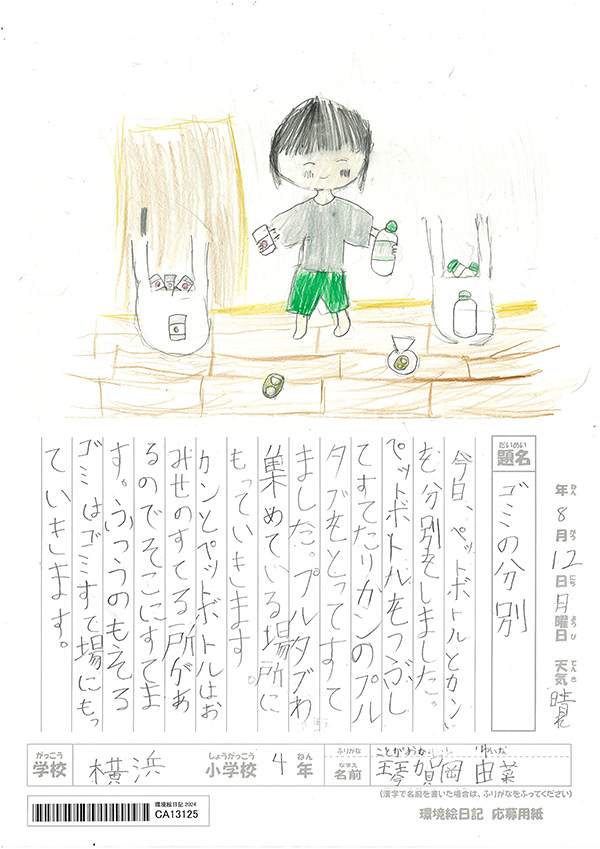 年 8月 12日 月曜日 天気 晴れ
ねん がつ にち ようび てんき
だいめい
題名 ゴミの分別
今日、ペットボトルとカン
を分別をしました。
ペットボトルをつぶし
てすてたりカンのプル
タブをとってすて
ました。プルタブわ
集めている場所に
もっていきます。
カンとペットボトルはお
みせのすてる所があ
るのでそこにすてま
す。ふつうのもえる
ゴミはゴミすて場にもっ
ていきます。
がっこう しょうがっこう ねん
学校 横浜 小学校 4年
ふりがな ことがおか ゆいな
なまえ
名前 琴賀岡 由菜
(漢字で名前を書いた場合は、ふりがなをふってください)
環境絵日記2024
CA13125
環境絵日記 応募用紙